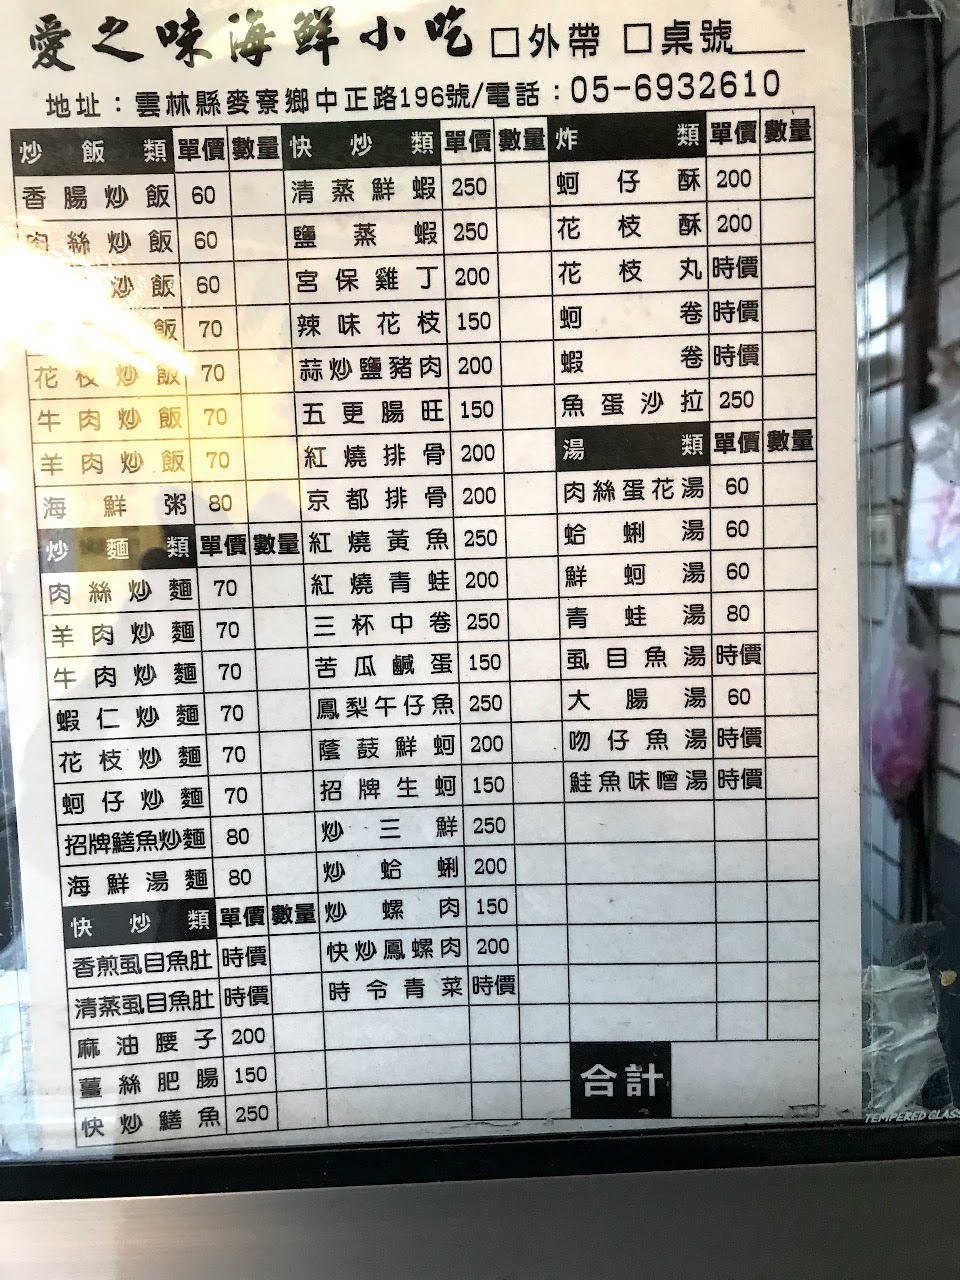 愛之味海鮮小吃 □外帶 □桌號
地址：雲林縣麥寮鄉中正路196號/電話：05-6932610
炒飯類 單價 數量
香腸炒飯 60
肉絲炒飯 60
炒飯 60
飯 70
花枝炒飯 70
牛肉炒飯 70
羊肉炒飯 70
海鮮粥 80
炒麵類 單價 數量
肉絲炒麵 70
羊肉炒麵 70
牛肉炒麵 70
蝦仁炒麵 70
花枝炒麵 70
蚵仔炒麵 70
招牌鱔魚炒麵 80
海鮮湯麵 80
快炒類 單價 數量
香煎虱目魚肚 時價
清蒸虱目魚肚 時價
麻油腰子 200
薑絲肥腸 150
快炒鱔魚 250
快炒類 單價 數量
清蒸鮮蝦 250
鹽蒸蝦 250
宮保雞丁 200
辣味花枝 150
蒜炒鹽豬肉 200
五更腸旺 150
紅燒排骨 200
京都排骨 200
紅燒黃魚 250
紅燒青蛙 200
三杯中卷 250
苦瓜鹹蛋 150
鳳梨午仔魚 250
蔭鼓鮮蚵 200
招牌生蚵 150
炒三鮮 250
炒蛤蜊 200
炒螺肉 150
快炒鳳螺肉 200
時令青菜 時價
炸類 單價 數量
蚵仔酥 200
花枝酥 200
花枝丸 時價
蚵卷 時價
蝦卷 時價
魚蛋沙拉 250
湯類 單價 數量
肉絲蛋花湯 60
蛤蜊湯 60
鮮蚵湯 60
青蛙湯 80
虱目魚湯 時價
大腸湯 60
吻仔魚湯 時價
鮭魚味噌湯 時價
合計
TEMPERED GLASS